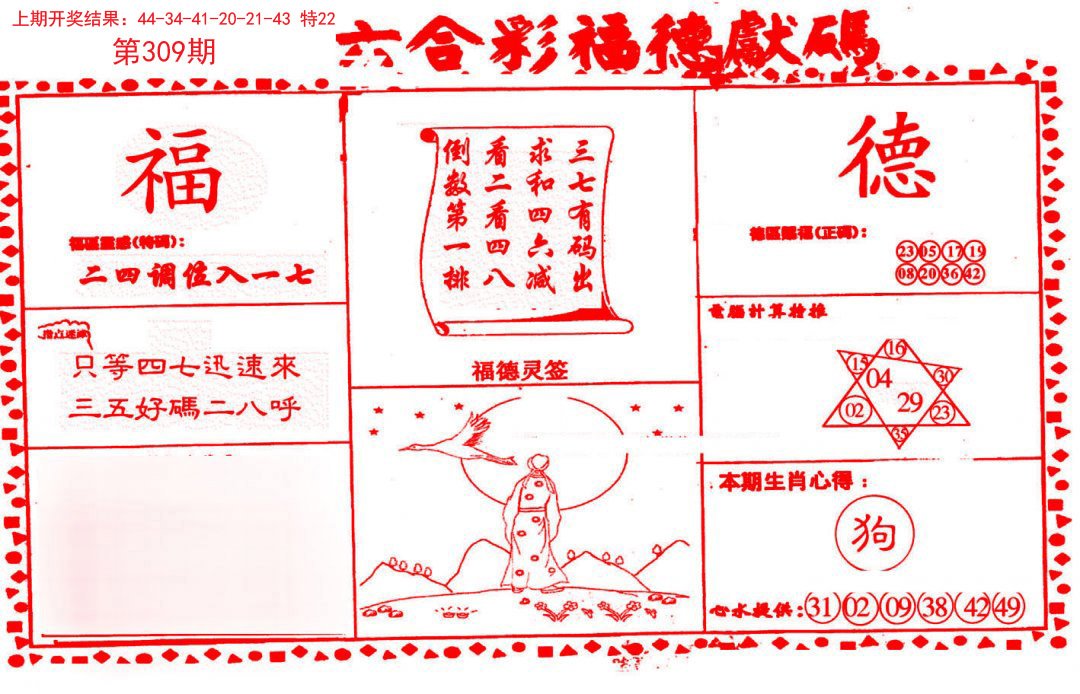 上期开奖结果：44-34-41-20-21-43 特22
第309期
六合彩福德獻碼
福
福區靈感(特碼)：
二四调位入一七
指点迷津
只等四七迅速來
三五好碼二八呼
三七有码出
求和四六减
看二看四八
倒数第一排
福德灵签
德
德區賜福(正碼)：
23 05 17 19
08 20 36 42
電腦計算精推
16
15
04
30
02
29
23
35
本期生肖心得：
狗
心水提供：31 02 09 38 42 49